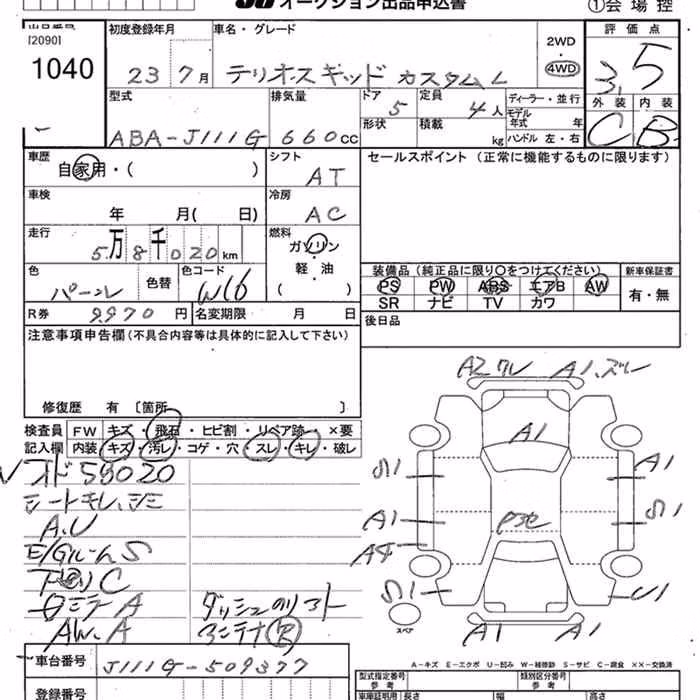 オークション出品申込書
①会場控
出品番号
120901
1040
初度登録年月
23 7月
車名・グレード
テリオスキッド カスタムL
2WD
・
4WD
評価点
3.5
外装 内装
C B
型式
ABA-J111G
排気量
660cc
ドア
5
定員
4人
形状
積載
kg
ディーラー・並行
モデル年式 年
ハンドル 左・右
車歴
自家用・( )
シフト
AT
セールスポイント (正常に機能するものに限ります)
車検
年 月( 日)
冷房
AC
走行
5万8千020km
燃料
ガソリン
軽・油
( )
色
パール
色替
色コード
W16
装備品 (純正品に限り○をつけてください)
新車保証書
PS PW ABS エアB AW
SR ナビ TV カワ
有・無
R券 9970円
名変期限 月 日
後日品
注意事項申告欄(不具合内容等は具体的に記入して下さい)
修復歴 有 〔箇所 〕
検査員 FW キズ・飛石・ヒビ割・リペア跡・×要
記入欄 内装 キズ・汚レ・コゲ・穴・スレ・キレ・破レ
オド58020
シートキレ、シミ
A.U
E/GルームS
下回りC
ロミラーA
AW.A
ダッシュのリフト
アンテナ欠
A2 ワレ A1、ズレー
A1
S1
A1
A1
S1
A4
S1
U1
スペア
A1 A1
A-キズ E-エクボ U-凹み W-補修跡 S-サビ C-腐食 ××-交換済
車台番号 J111G-509377
登録番号
型式指定番号
参考
類別区分番号
参考
車庫証明用 長さ 幅 高さ